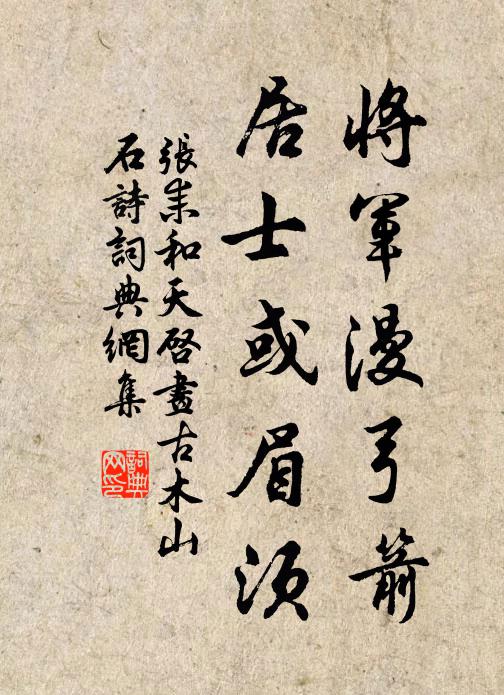 將軍漫弓箭
居士或眉須
張耒和天啓畫古木山
石詩詞典網集
詞典网印